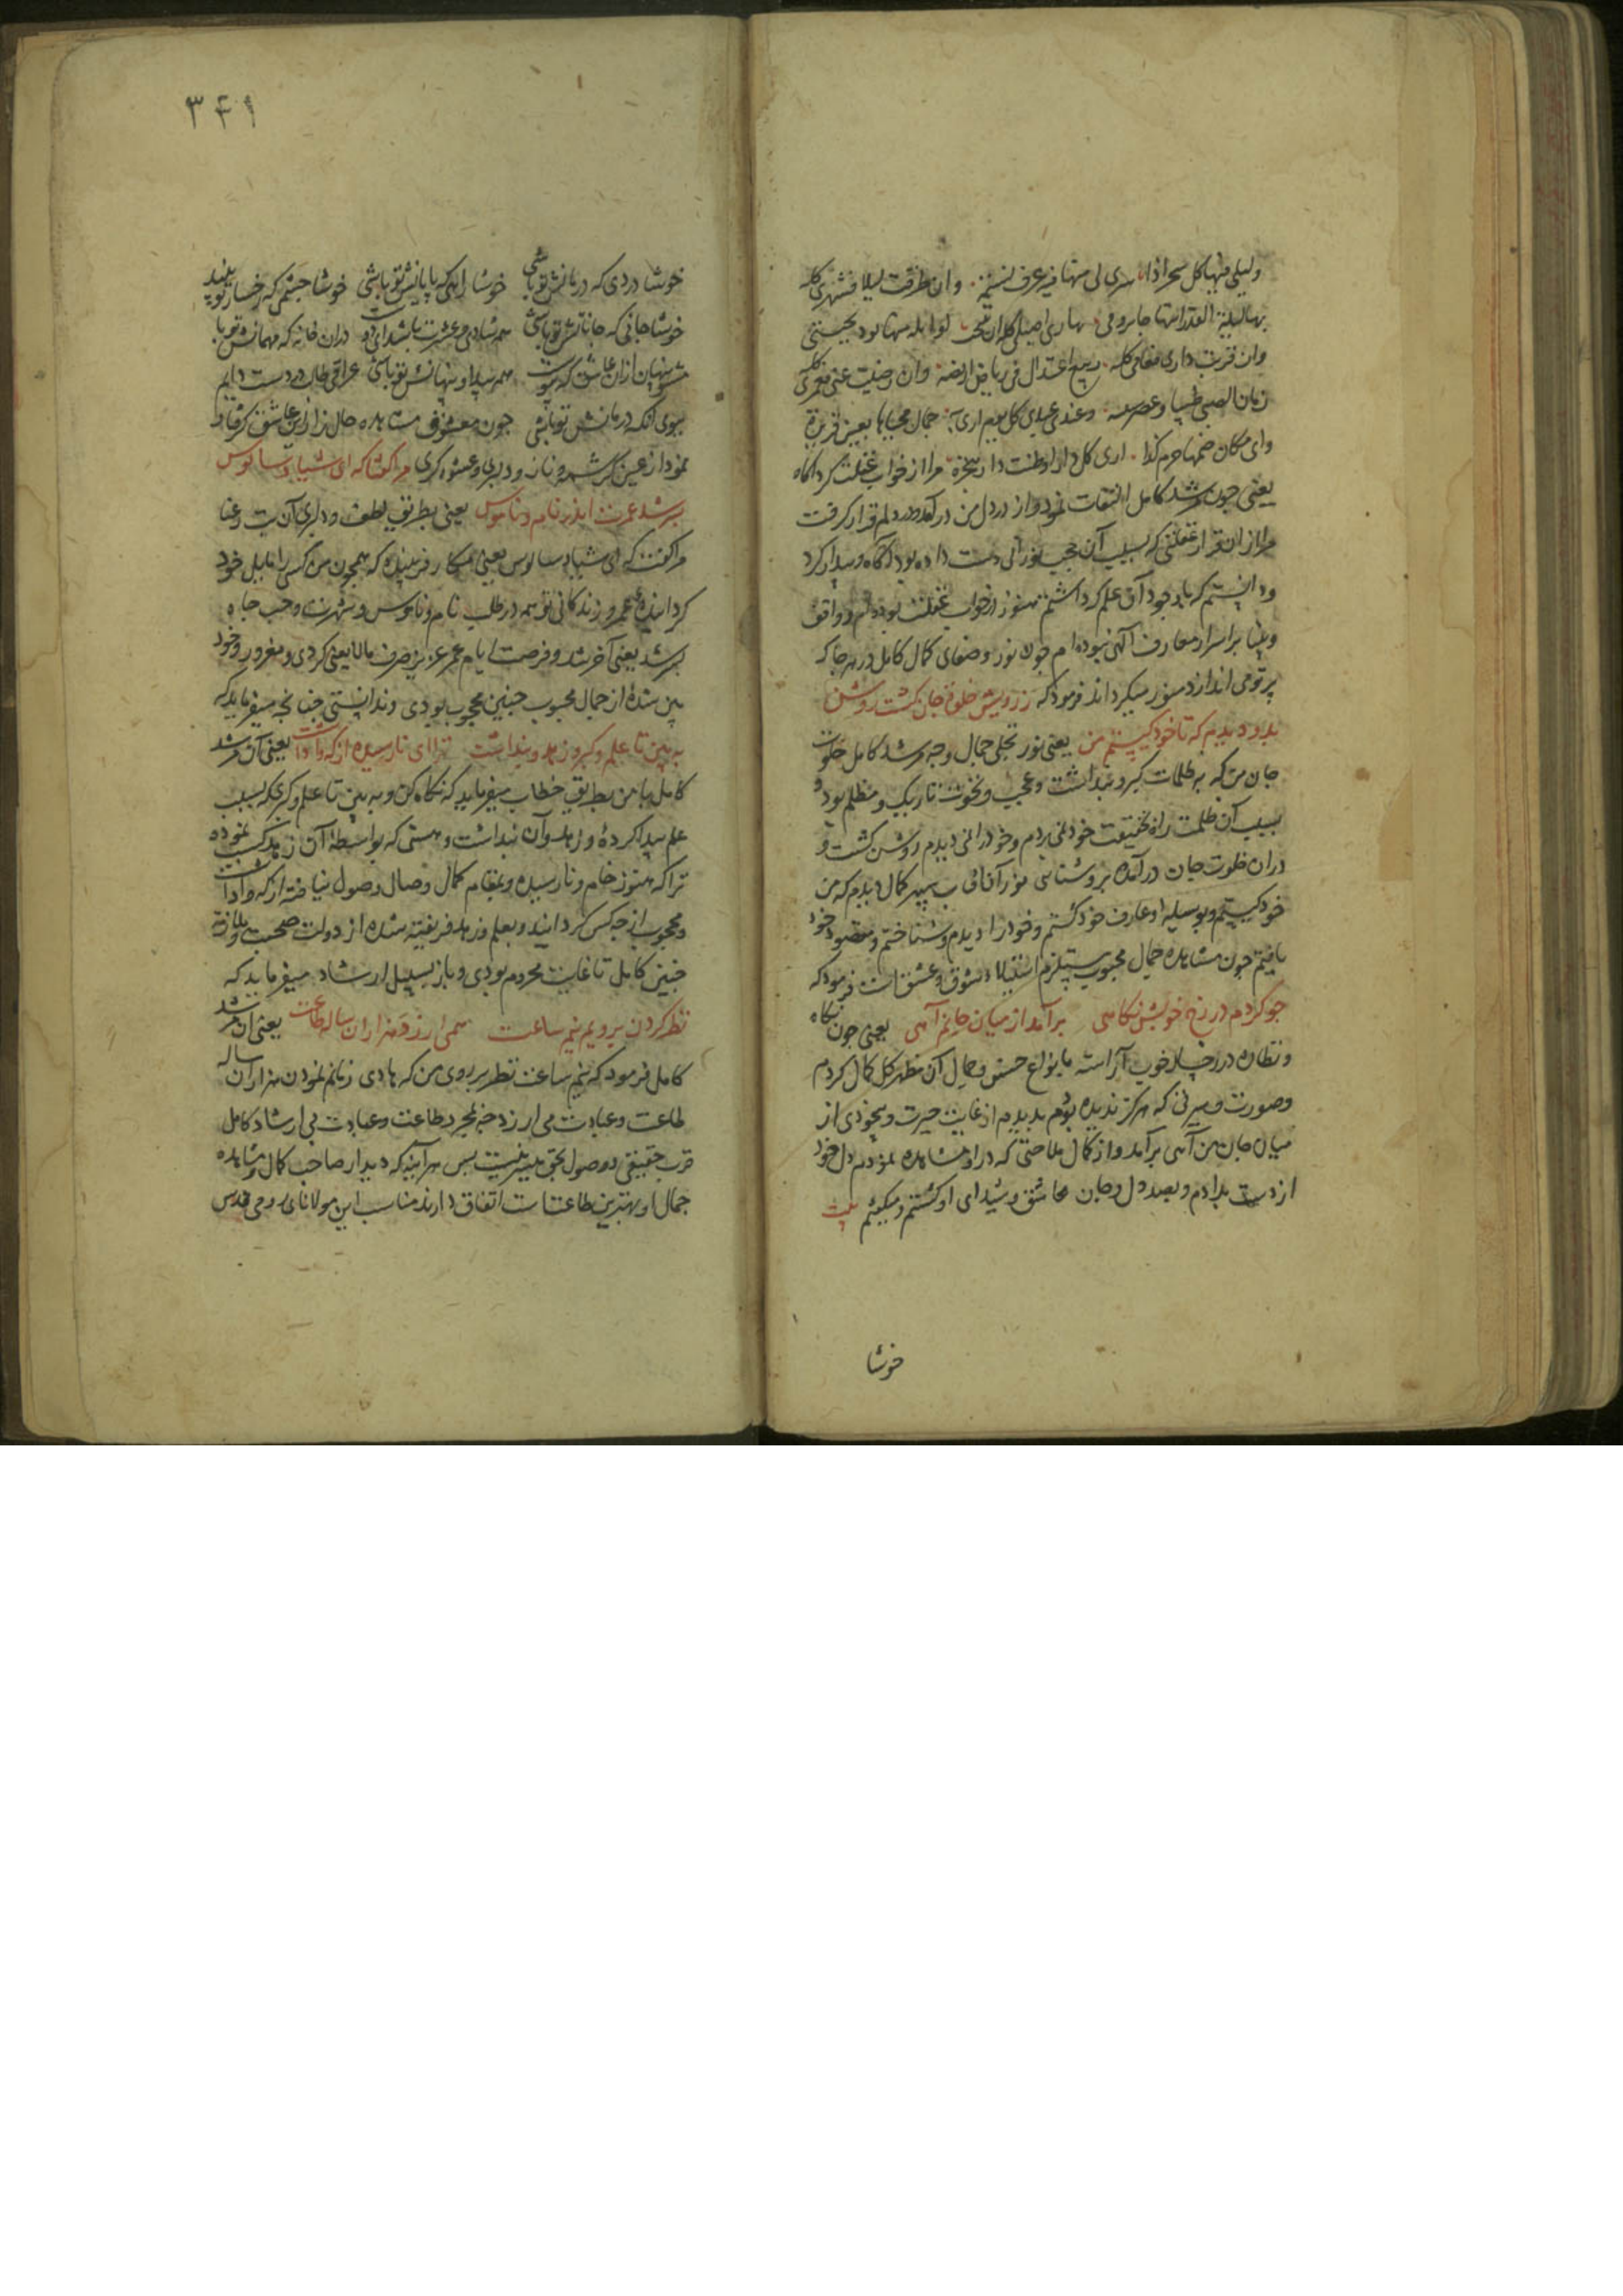 ولیلی فیها کل سحر اذا سری لی منها فیه عرف نسیمة وان طرقت لیلا فشهری کله
بها لیلة القدر ابتهاجا بزورة
وان قربت داری فعامی کله ربیع اعتدال فی ریاض اریضة وان رضیت عنی فعمری کله
زمان الصبی طیبا وعصر وعندی عیدی کل یوم اری به جمال محیاها بعین قریرة
وای مکان ضمها حرم کذا اری کل دار اوطنت دار هجرة مرا از خواب غفلت کرد آگاه
یعنی چون مرشد کامل التفات نمود واز در دل من درآمد ودر دلم قرار کرفت
مرا ازان قرار غفلتی که بسبب آن حجب نورانی دست داده بود آگاه وبیدار کرد
ودانستم که باوجود آن علم کرداشتم هنوز از خواب غفلت بوده‌ام وواقف
وبینا بر اسرار معارف الهی نبوده‌ام چون نور وصفای کمال کامل در هرجا که
پرتو می اندازد منور میکرداند فرمود که ز رویش خلوة جان کشت روشن
بدو دیدم که تا خود کیستم من یعنی نور تجلی جمال وجه مرشد کامل خلوت
جان من که به ظلمات کبر وپنداشت وعجب ونخوت تاریک ومظلم بود و
بسبب آن ظلمت راه بحقیقت خود نمی بردم وخود را نمی دیدم روشن کشت و
دران خلوت جان درآمده بروشنایی نور آفتاب سپهر کمال دیدم که من
خود کیستم وبوسیله او عارف خود کشتم وخود را دیدم وشناختم ومقصود خود
یافتم چون مشاهده جمال محبوب مستلزم استیلاء شوق وعشق است فرمود که
چو کردم در رخ خوبش نکاهی برآمد از میان جانم آهی یعنی چون نکاه
ونظاره در رخسار خوب آراسته بانواع حسن وجمال آن مظهر کل کمال کردم
وصورت وسیرتی که هرکز ندیده بودم بدیدم از غایت حیرت وبیخودی از
میان جان من آهی برآمد واز کمال ملاحتی که در او مشاهده نمودم دل خود
از دست بدادم وبصد دل وجان عاشق وشیدای او کشتم ومیکویم بیت
خوشا
۳۴۱
خوشا دردی که درمانش تو باشی خوشا راهی که پایانش تو باشی خوشا چشمی که رخسار تو بیند
خوشا جانی که جانانش تو باشی همه شادی وعشرت باشد ای دوست دران خانه که مهمانش تو باشی
مشو پنهان ازان عاشق که پیوست همه پیدا وپنهانش تو باشی عراقی طالب دردست دایم
ببوی آنکه درمانش تو باشی چون معشوق مشاهده حال زار این عاشق کرفتار
نمود از عین کرشمه وناز ودلبری وعشوه کری مرا کفتا که ای شیاد وسالوس
بسر شد عمرت اندر نام وناموس یعنی بطریق لطف ودلبری آن بت رعنا
مرا کفت که ای شیاد سالوس یعنی ای مکار فریبنده که همچون من کسی را مایل خود
کردانیده عمر وزندکانی تو همه در طلب نام وناموس وشهرت وحب جاه
بسر شد یعنی آخر شد وفرصت ایام عمر عزیز صرف مالایعنی کردی ومغرور وخود
بین شده از جمال محبوب چنین محجوب بودی وندانستی چنانچه میفرماید که
ببین تا علم وکبر وزهد وپنداشت ترا ای نارسیده از که واداشت یعنی آن مرشد
کامل با من بطریق خطاب میفرماید که نکاه کن وببین تا علم وکبری که بسبب
علم پیدا کرده وزهد وآن پنداشت وهستی که بواسطه آن زهد کسب نموده
ترا که هنوز خام ونارسیده وبمقام کمال وصال وصول نیافته از که واداشت
ومحجوب از چه کس کردانید وبعلم وزهد فریفته شده از دولت صحبت وملازمت
چنین کامل تا غایت محروم بودی وباز بسبیل ارشاد میفرماید که
نظر کردن برویم نیم ساعت همی ارزد هزاران ساله طاعت یعنی آن مرشد
کامل فرمود که نیم ساعت نظر بر روی من که هادی زمانم نمودن هزاران ساله
طاعت وعبادت می ارزد چه بمجرد طاعت وعبادت بی ارشاد کامل
قرب حقیقی ووصول بحق میسر نیست پس هرآینه که دیدار صاحب کمال ومشاهده
جمال او بهترین طاعتها ست اتفاق دارند مناسب این مولانای رومی قدس